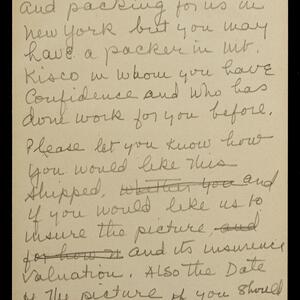 and packing for us in
New York but you may
have a packer in Mt.
Kisco in whom you have
Confidence and who has
done work for you before.
Please let you know how
you would like this
shipped, whether you and
if you would like us to
insure the picture, and
for how m and its insurance
valuation. Also the Date
of the picture if you should